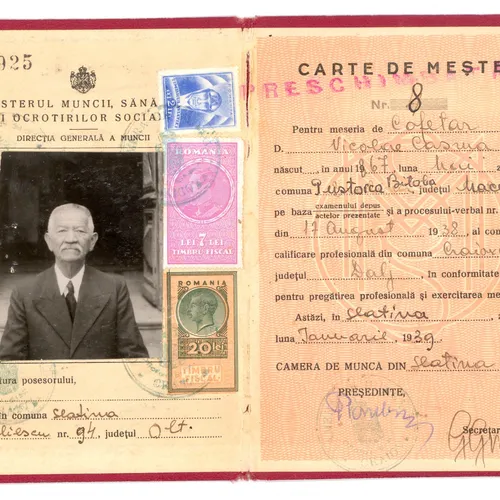 925
STERUL MUNCII, SĂNĂ
I OCROTIRILOR SOCIA
DIRECȚIA GENERALĂ A MUNCII
2 LEI
ROMANIA
LEI 7 LEI
TIMBRU FISCAL
ROMANIA
20 lei
TIMBRU
FISCAL
tura posesorului,
în comuna Slatina
nr. 94. județul Olt.
CARTE DE MEȘTE
PRESCHIM
Nr. 8
Pentru meseria de Cofetar
D. Nicolae Casma
născut, în anul 1867, luna Maiu
comuna județul Mac
pe baza examenului depus
actelor prezentate și a procesului-verbal nr.
din 17 August 1938 al co
calificare profesională din comuna Craiov
județul Dolj, în conformitate
pentru pregătirea profesională și exercitarea me
Astăzi, în Slatina
luna Ianuarie 1939
CAMERA DE MUNCA DIN Slatina
PREȘEDINTE,
Secretar